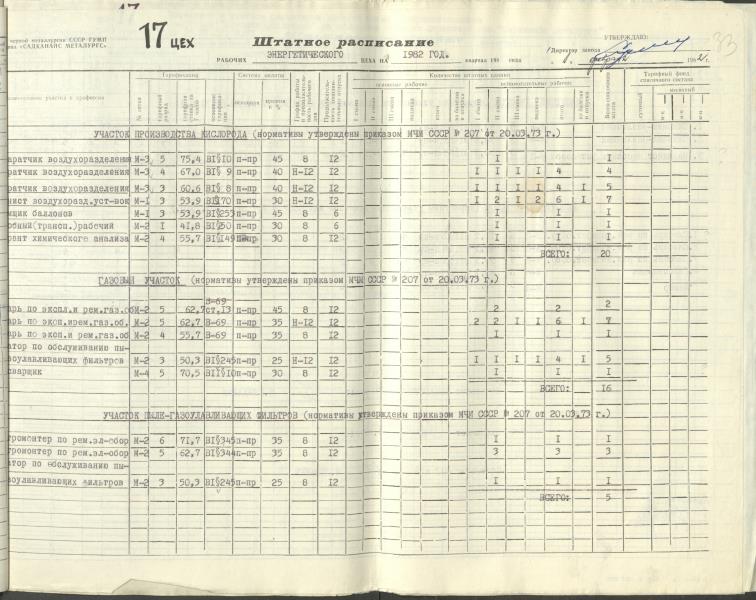 черной металлургии СССР ГУМП
«САДКАНАИС МЕТАЛУРГС»
17 ЦЕХ
Штатное расписание
УТВЕРЖДАЮ:
Директор завода
РАБОЧИХ ЭНЕРГЕТИЧЕСКОГО ЦЕХА НА 1982 ГОД. квартал 198 года
33
Система оплаты
Количество штатных единиц
основные рабочие
вспомогательные рабочие
УЧАСТОК ПРОИЗВОДСТВА КИСЛОРОДА (нормативы утверждены приказом МЧМ СССР № 207 от 20.03.73 г.)
аратчик воздухоразделения М-3 5 75,4 ВI§10 п-пр 45 8 I2 I I
ратчик воздухоразделения М-3 4 67,0 ВI§ 9 п-пр 40 Н-I2 I I I I 4 4
аратчик воздухоразделения М-3 3 60,6 ВI§ 8 п-пр 40 8 I2 I I I I 4 I 5
нист воздухоразд.уст-вок М-I 3 53,9 ВI§70 п-пр 30 Н-I2 I 2 I 2 6 I 7
щик баллонов М-I 3 53,9 ВI§255 п-пр 45 8 6 I I I
обный(трансп.)рабочий М-2 I 4I,8 ВI§50 п-пр 30 8 6 I I I
рант химического анализа М-2 4 55,7 ВI§I49 п-пр 30 8 I2 I I I
ВСЕГО: 20
ГАЗОВЫЙ УЧАСТОК (нормативы утверждены приказом МЧМ СССР № 207 от 20.03.73 г.)
арь по экспл.и рем.газ.об М-2 5 62,7 В-69 ст.I3 п-пр 45 8 I2 2 2 2
рь по эксп.ирем.газ.об. М-2 5 62,7 В-69 п-пр 35 Н-I2 2 2 I I 6 I 7
арь по эксп.и рем.газ.об М-2 4 55,7 В-69 п-пр 35 8 I2 I I I
атор по обслуживанию пы-
азоулавливающих фильтров М-2 3 50,3 ВI§245 п-пр 25 Н-I2 I I I I 4 I 5
сварщик М-4 5 70,5 ВII§I0 п-пр 30 8 I2 I I I
ВСЕГО: I6
УЧАСТОК ПЫЛЕ-ГАЗОУЛАВЛИВАЮЩИХ ФИЛЬТРОВ (нормативы утверждены приказом МЧМ СССР № 207 от 20.03.73 г.)
тромонтер по рем.эл-обор М-2 6 7I,7 ВI§345 п-пр 35 8 I2 I I I
тромонтер по рем.эл-обор М-2 5 62,7 ВI§344 п-пр 35 8 I2 3 3 3
атор по обслуживанию пы-
азоулавливающих фильтров М-2 3 50,3 ВI§245 п-пр 25 8 I2 I I I
ВСЕГО: 5